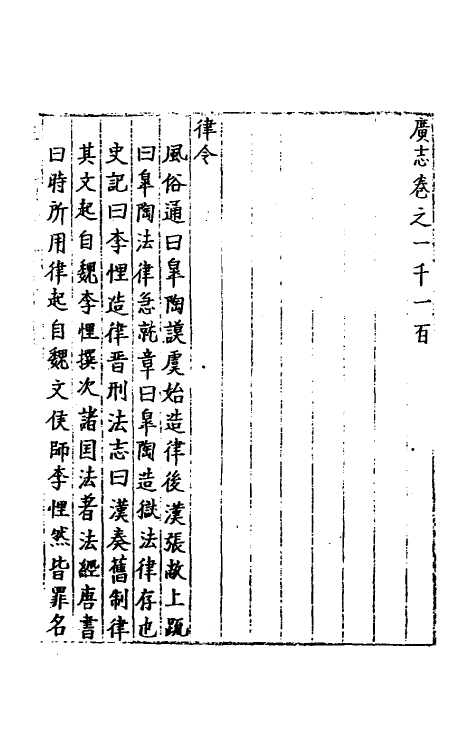 廣志卷之一千一百
律令
風俗通曰臯陶謨虞始造律後漢張敏上䟽
曰臯陶法律急就章曰臯陶造獄法律存也
史記曰李悝造律晋刑法志曰漢奏舊制律
其文起自魏李悝撰次諸国法著法經唐書
曰時所用律起自魏文侯師李悝然皆罪名